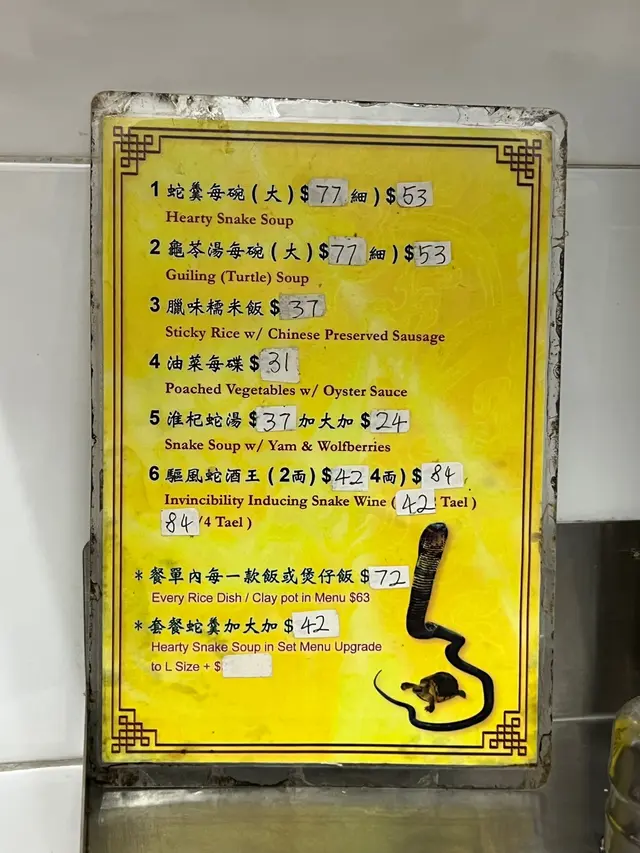 1 蛇羹每碗(大)$77 細)$53
Hearty Snake Soup
2 龜苓湯每碗(大)$77 細)$53
Guiling (Turtle) Soup
3 臘味糯米飯 $37
Sticky Rice w/ Chinese Preserved Sausage
4 油菜每碟 $31
Poached Vegetables w/ Oyster Sauce
5 淮杞蛇湯 $37 加大加 $24
Snake Soup w/ Yam & Wolfberries
6 驅風蛇酒王(2両)$42 4両)$84
Invincibility Inducing Snake Wine (42 Tael)
84/4 Tael)
*餐單內每一款飯或煲仔飯 $72
Every Rice Dish / Clay pot in Menu $63
*套餐蛇羹加大加 $42
Hearty Snake Soup in Set Menu Upgrade
to L Size + $